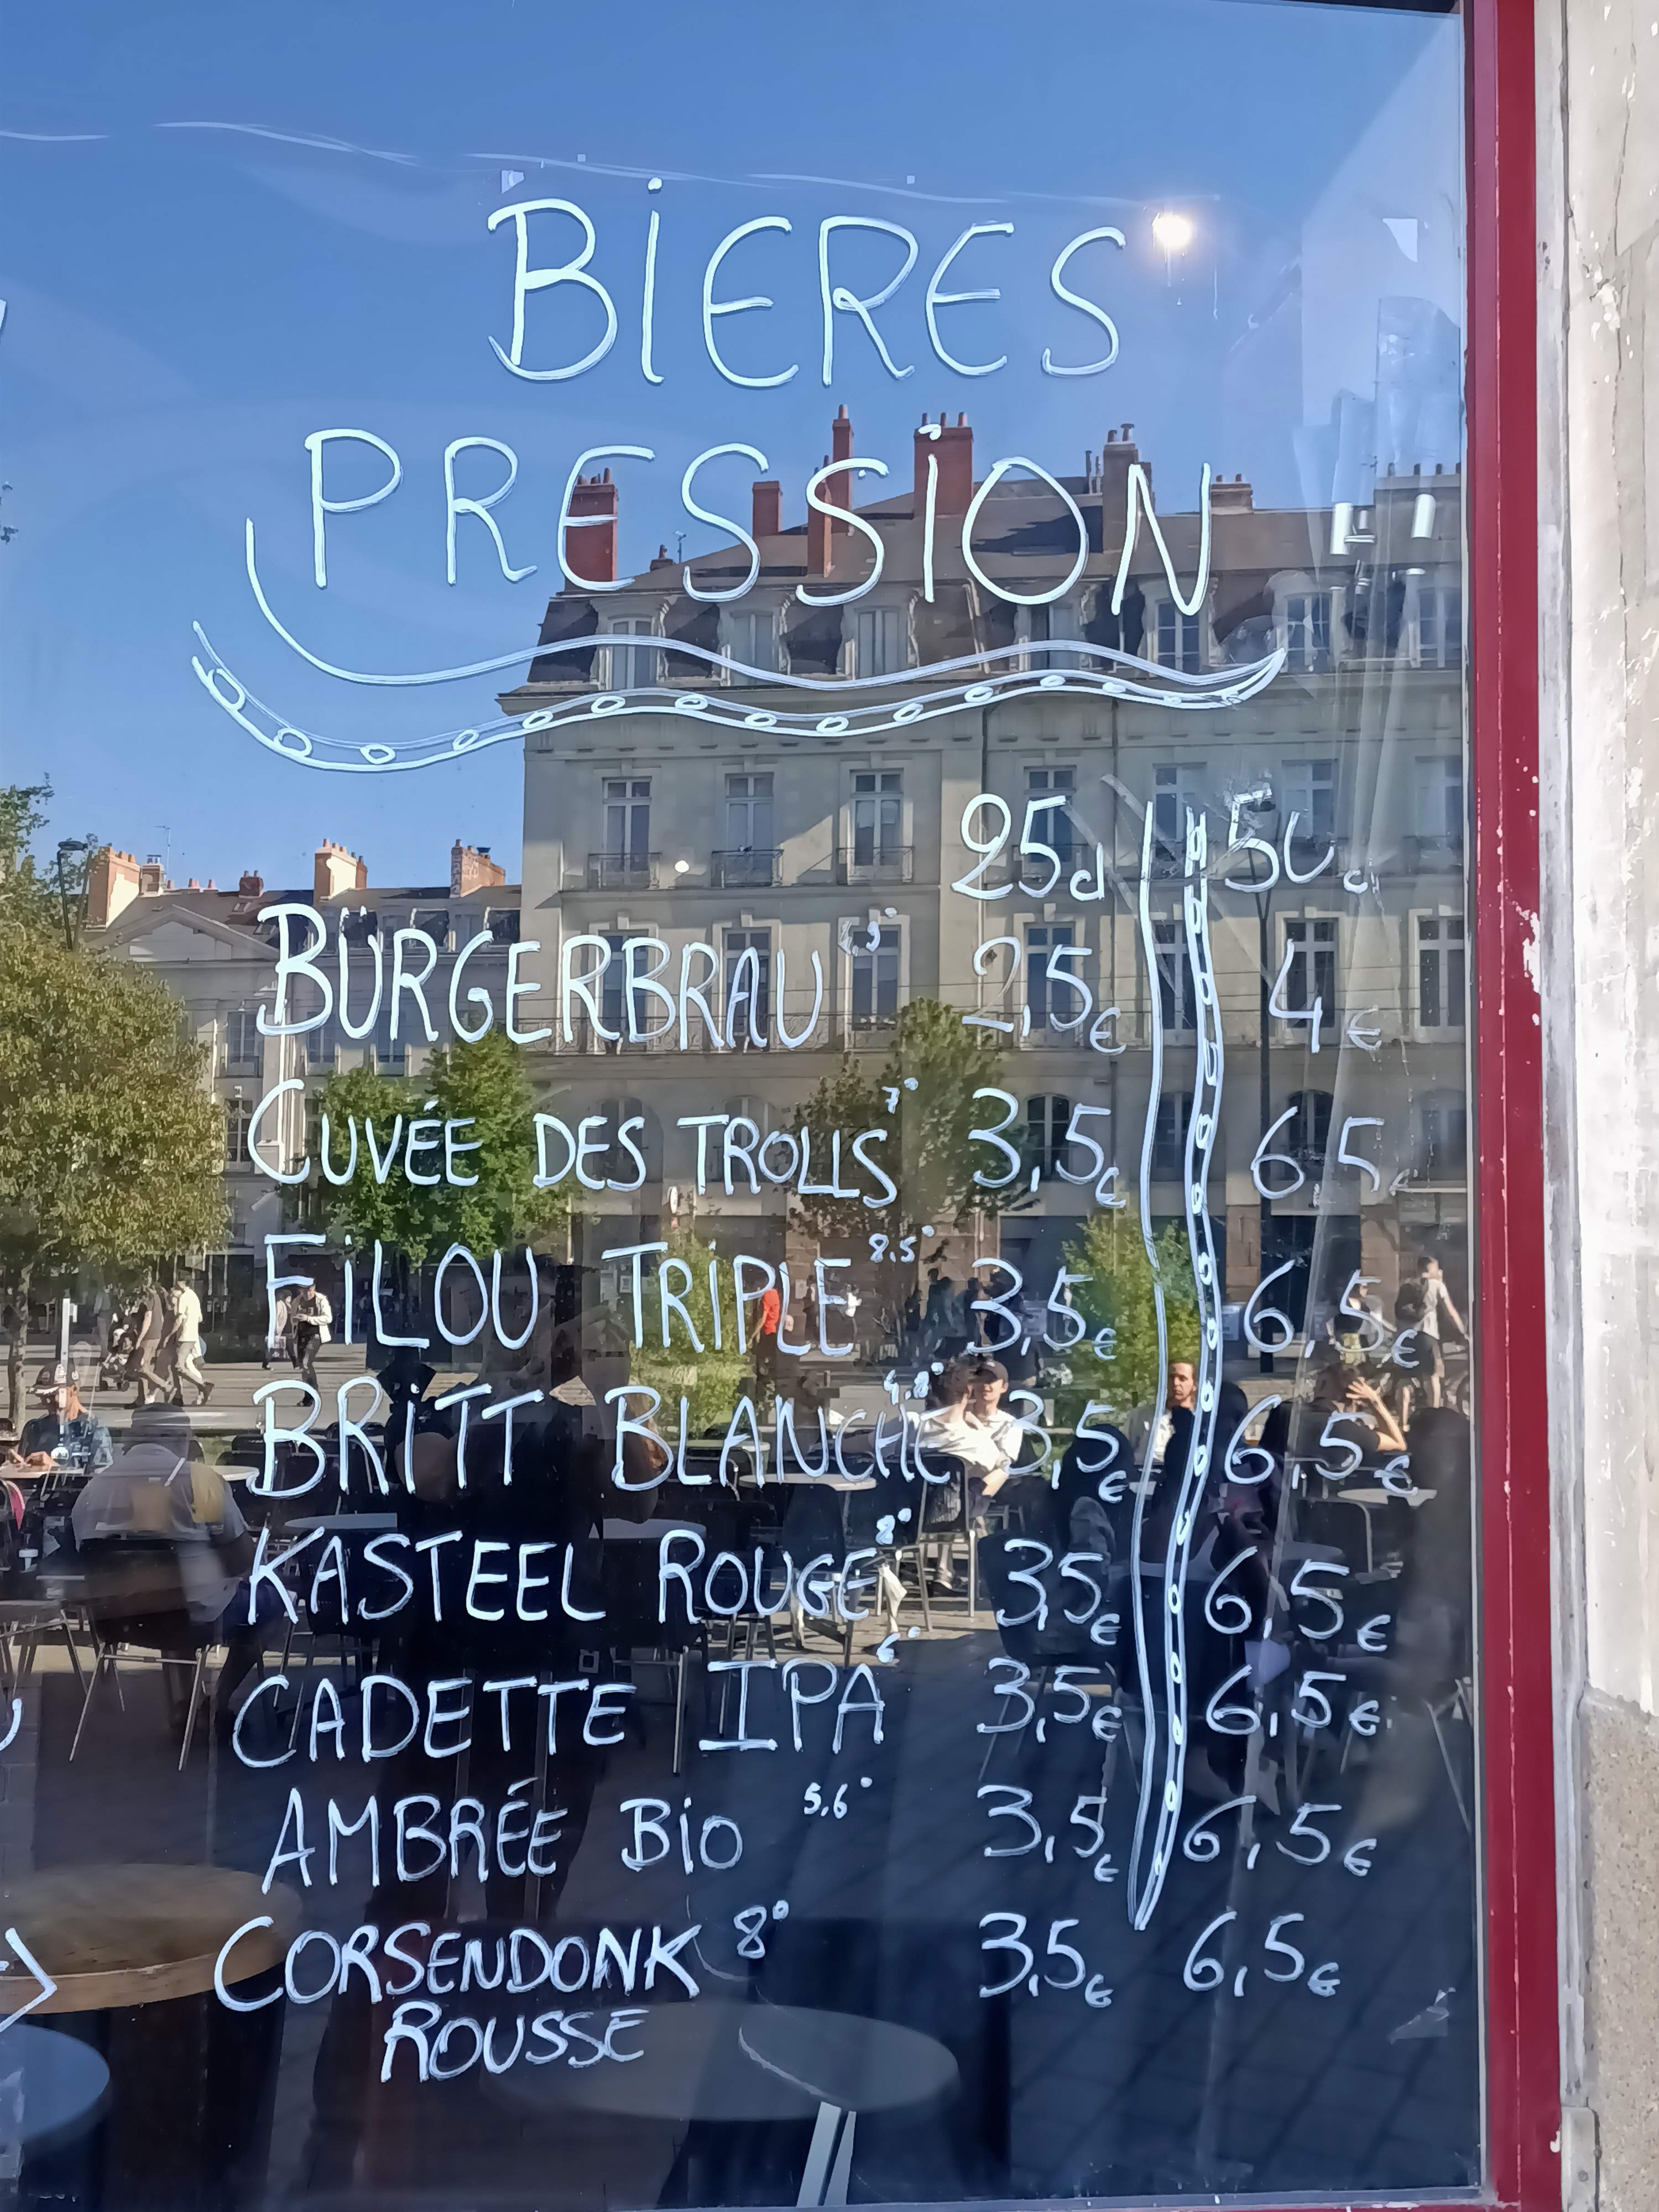 BIERES
PRESSION
25cl 50cl
BÜRGERBRAU 2,5€ 4€
CUVÉE DES TROLLS 7° 3,5€ 6,5€
FILOU TRIPLE 8.5° 3,5€ 6,5€
BRITT BLANCHE 4.8° 3,5€ 6,5€
KASTEEL ROUGE 8° 3,5€ 6,5€
CADETTE IPA 6° 3,5€ 6,5€
AMBRÉE BIO 5,6° 3,5€ 6,5€
CORSENDONK 8° 3,5€ 6,5€
ROUSSE